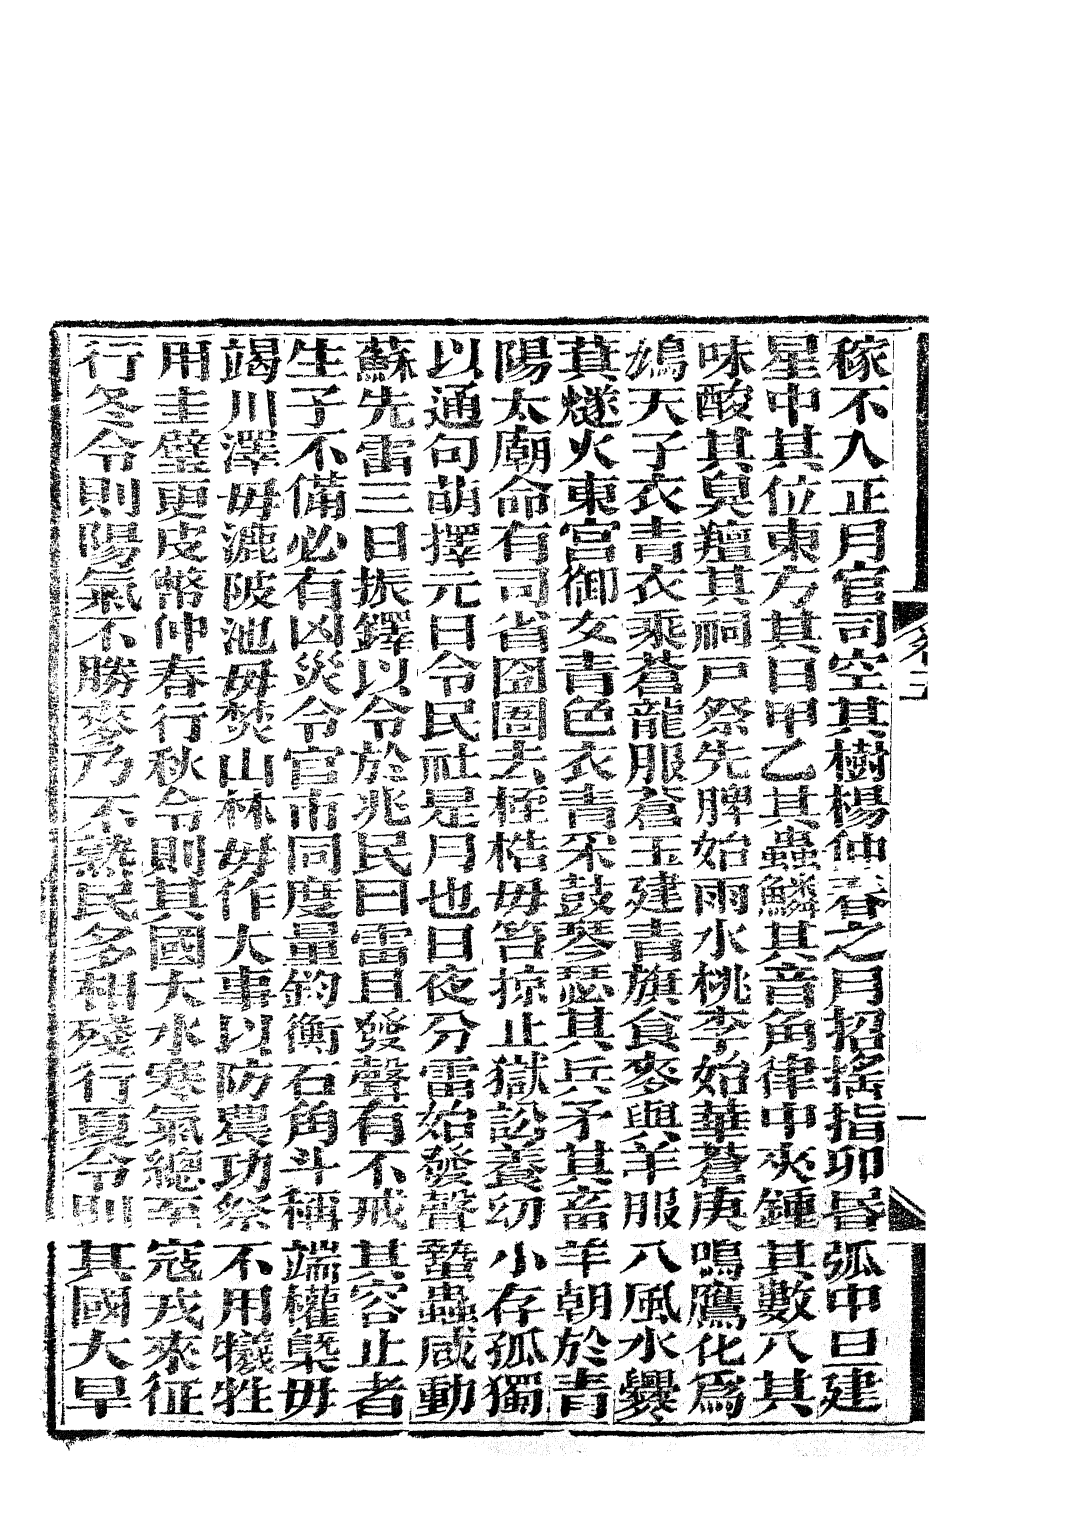 稼不入正月官司空其樹楊仲春之月招搖指卯昬弧中旦建
星中其位東方其日甲乙其蟲鱗其音角律中夾鍾其數八其
味酸其臭羶其祠戸祭先脾始雨水桃李始華蒼庚鳴鷹化爲
鳩天子衣青衣乘蒼龍服蒼玉建青旗食麥與羊服八風水爨
萁燧火東宮御女青色衣青采鼓琴瑟其兵矛其畜羊朝於青
陽太廟命有司省囹圄去桎梏毋笞掠止獄訟養幼小存孤獨
以通句萌擇元日令民社是月也日夜分雷始發聲蟄蟲咸動
蘇先雷三日振鐸以令於兆民曰雷且發聲有不戒其容止者
生子不備必有凶災令官市同度量鈞衡石角斗稱端權槩毋
竭川澤毋漉陂池毋焚山林毋作大事以防農功祭不用犧牲
用圭璧更皮幣仲春行秋令則其國大水寒氣總至寇戎來征
行冬令則陽氣不勝麥乃不熟民多相殘行夏令則其國大旱